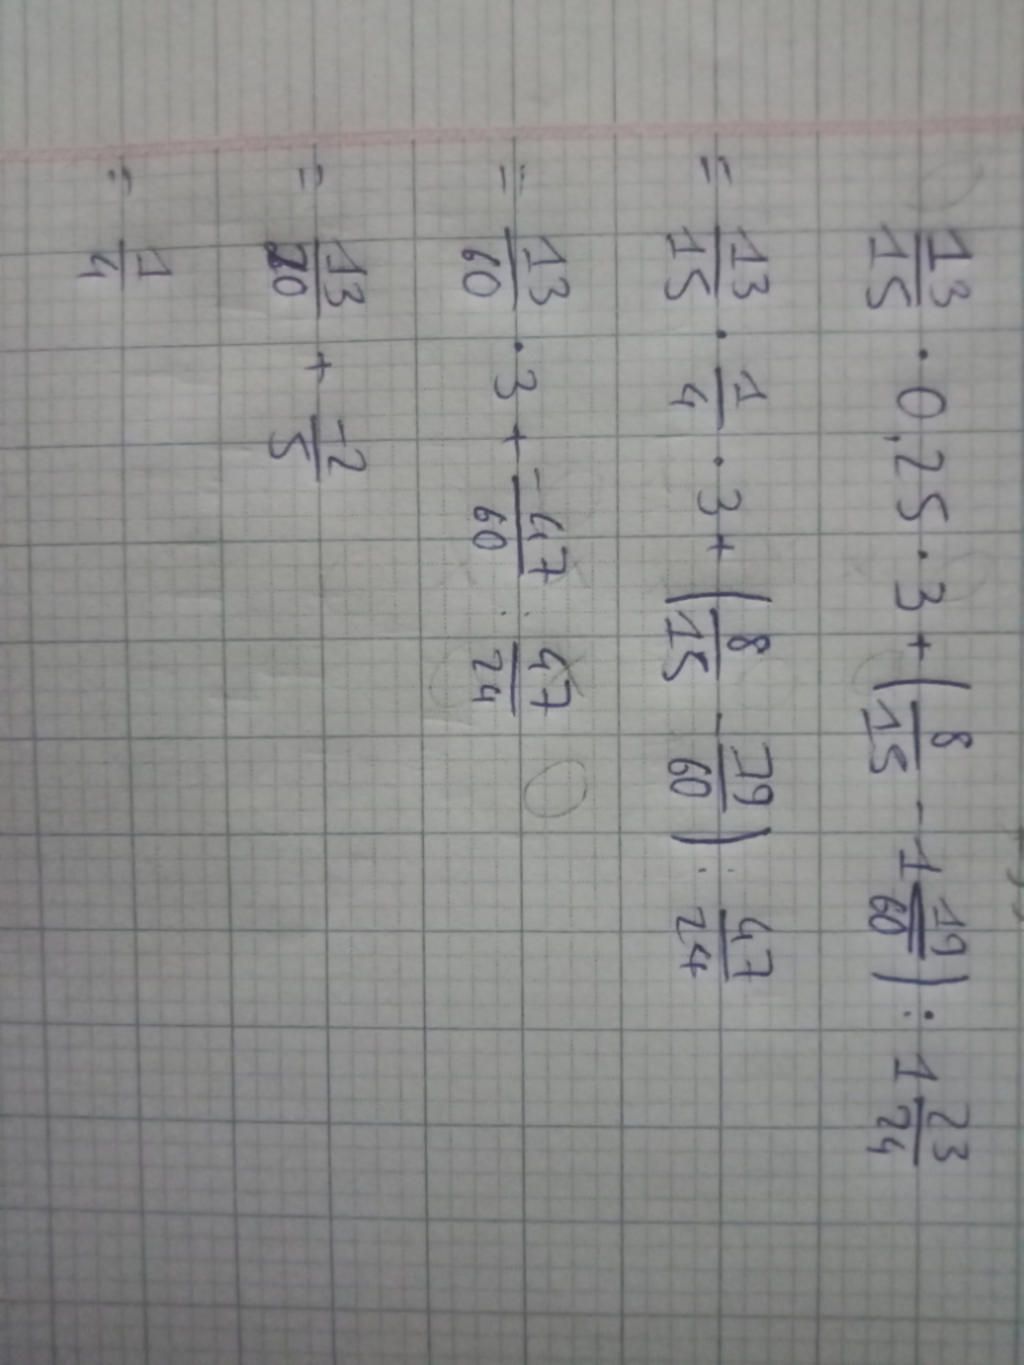 13/15 · 0,25 · 3 + (8/15 - 1 19/60) : 1 23/24
= 13/15 · 1/4 · 3 + (8/15 - 79/60) : 47/24
= 13/60 · 3 + -47/60 : 47/24
= 13/20 + -2/5
= 1/4